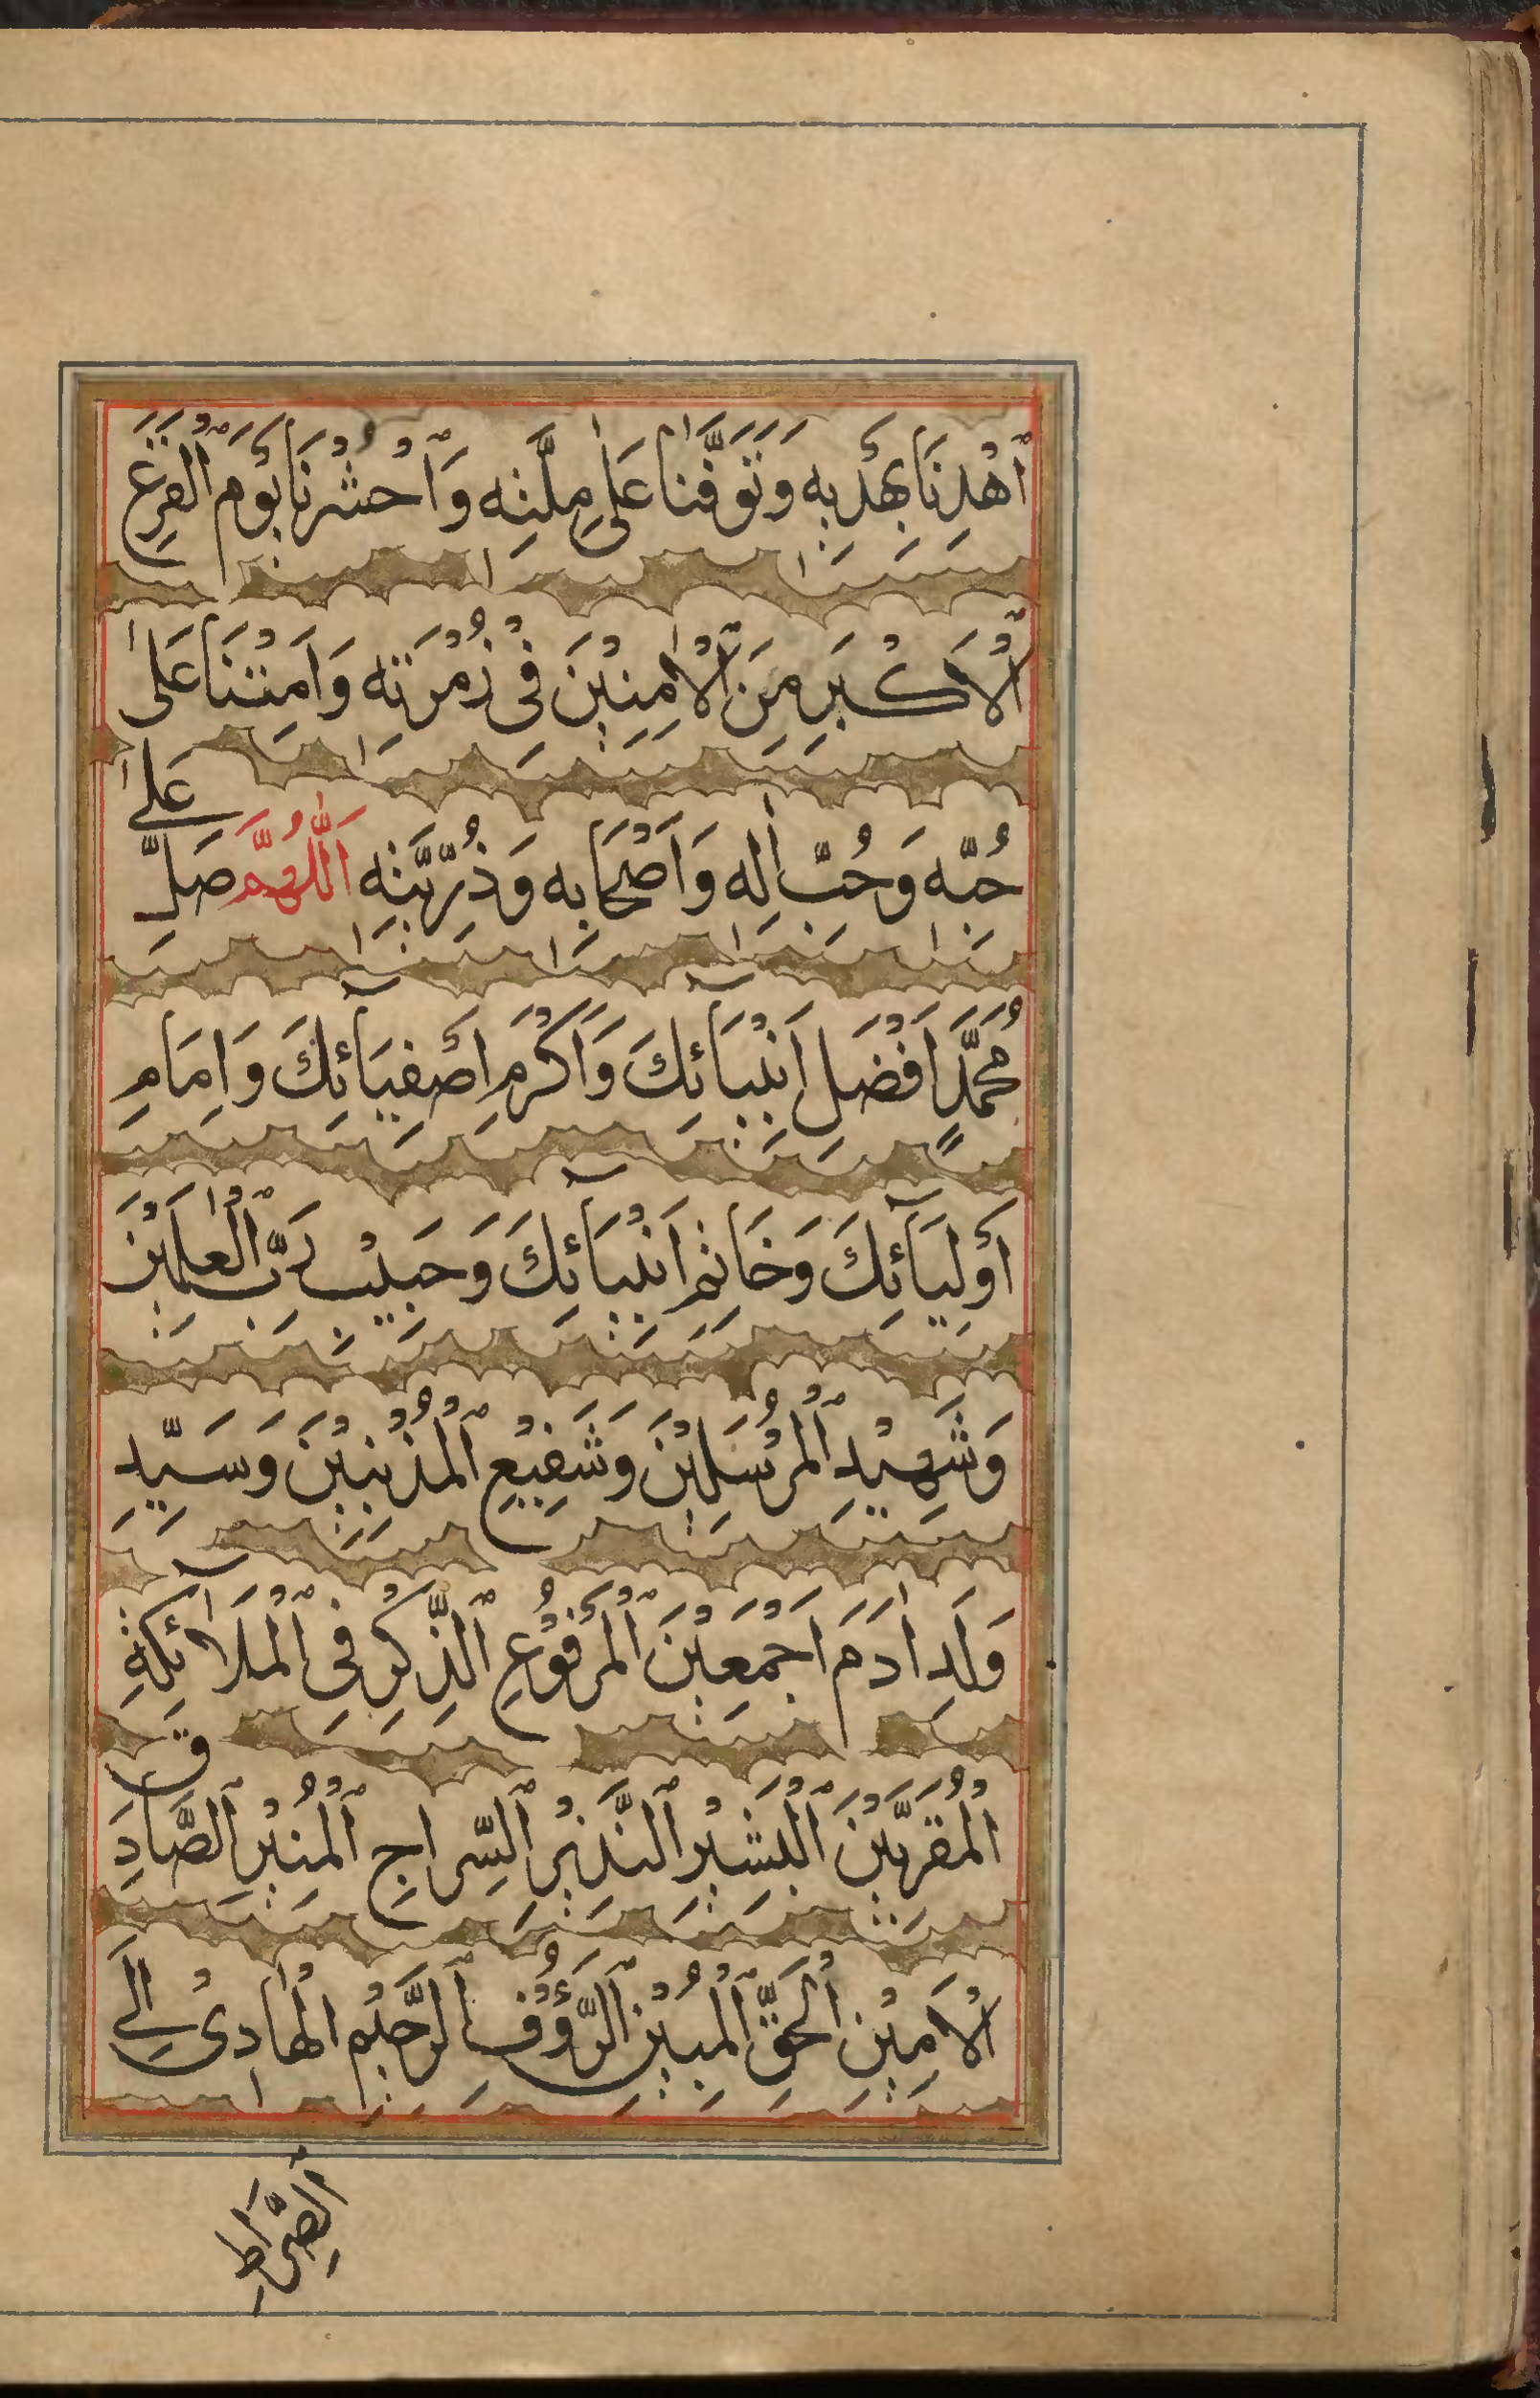 ٱهْدِنَا بِهَدْيِهٖ وَتَوَفَّنَا عَلٰى مِلَّتِهٖ وَٱحْشُرْنَا يَوْمَ ٱلْفَزَعِ
ٱلْاَكْبَرِ مِنَ ٱلْاٰمِنِيْنَ فِىْ زُمْرَتِهٖ وَاَمِتْنَا عَلٰى
حُبِّهٖ وَحُبِّ اٰلِهٖ وَاَصْحَابِهٖ وَذُرِّيَّتِهٖ اَللّٰهُمَّ صَلِّ عَلٰى
مُحَمَّدٍ اَفْضَلِ اَنْبِيَآئِكَ وَاَكْرَمِ اَصْفِيَآئِكَ وَاِمَامِ
اَوْلِيَآئِكَ وَخَاتَمِ اَنْبِيَآئِكَ وَحَبِيْبِ رَبِّ ٱلْعٰلَمِيْنَ
وَشَهِيْدِ ٱلْمُرْسَلِيْنَ وَشَفِيْعِ ٱلْمُذْنِبِيْنَ وَسَيِّدِ
وَلَدِ اٰدَمَ اَجْمَعِيْنَ ٱلْمَرْفُوْعِ ٱلذِّكْرِ فِى ٱلْمَلَآئِكَةِ
ٱلْمُقَرَّبِيْنَ ٱلْبَشِيْرِ ٱلنَّذِيْرِ ٱلسِّرَاجِ ٱلْمُنِيْرِ ٱلصَّادِقِ
ٱلْاَمِيْنِ ٱلْحَقِّ ٱلْمُبِيْنِ ٱلرَّؤُفِ ٱلرَّحِيْمِ ٱلْهَادِىْ اِلَى
ٱلصِّرَاطِ